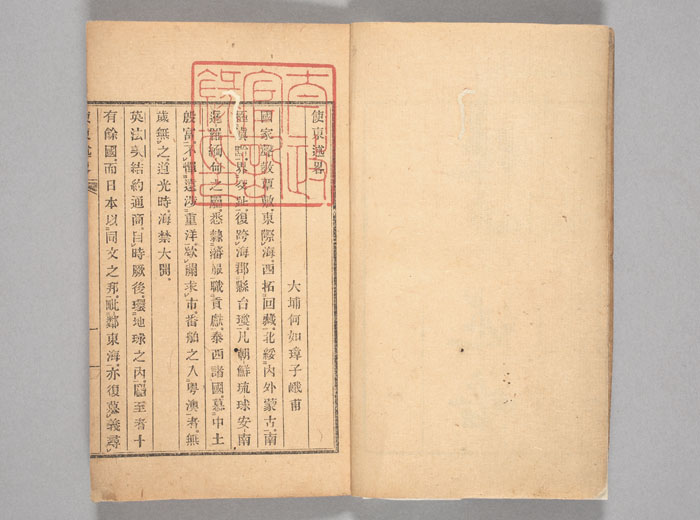 使東述畧
大埔何如璋子峨甫
國家聲教覃敷東際海西拓回藏北綏內外蒙古南
滇黔界交趾復跨海郡縣台瓊凡朝鮮琉球安南
暹羅緬甸之屬悉隸藩服職貢獻泰西諸國慕中土
殷富不憚遠涉重洋款關求市番舶之入粵澳者無
歲無之道光時海禁大開
英法美結約通商自時厥後環地球之內至者十
有餘國而日本以同文之邦毗鄰東海亦復慕義尋
使東述畧
一
太政
官